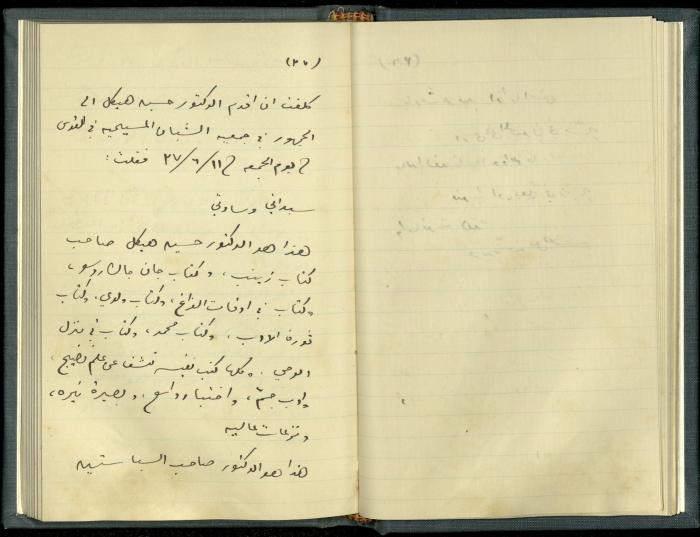 (٣٧)
كلفت ان اقدم الدكتور حسين هيكل الى
الجمهور في جمعية الشبان المسيحية في القدس
يوم الجمعه ١١/٦/٣٧ فقلت :
سيداتي وسادتي
هذا هو الدكتور حسين هيكل صاحب
كتاب زينب ، وكتاب جان جاك روسو ،
وكتاب في اوقات الفراغ ، وكتاب ولدي ، وكتاب
ثورة الادب ، وكتاب محمد ، وكتاب في منزل
الوحي . وكلها كتب نفيسه تشف عن علم نضيج ،
وادب جمّ ، واختبار واسع ، وبصيرة نيره ،
ونزعات عاليه
هذا هو الدكتور صاحب السياسية